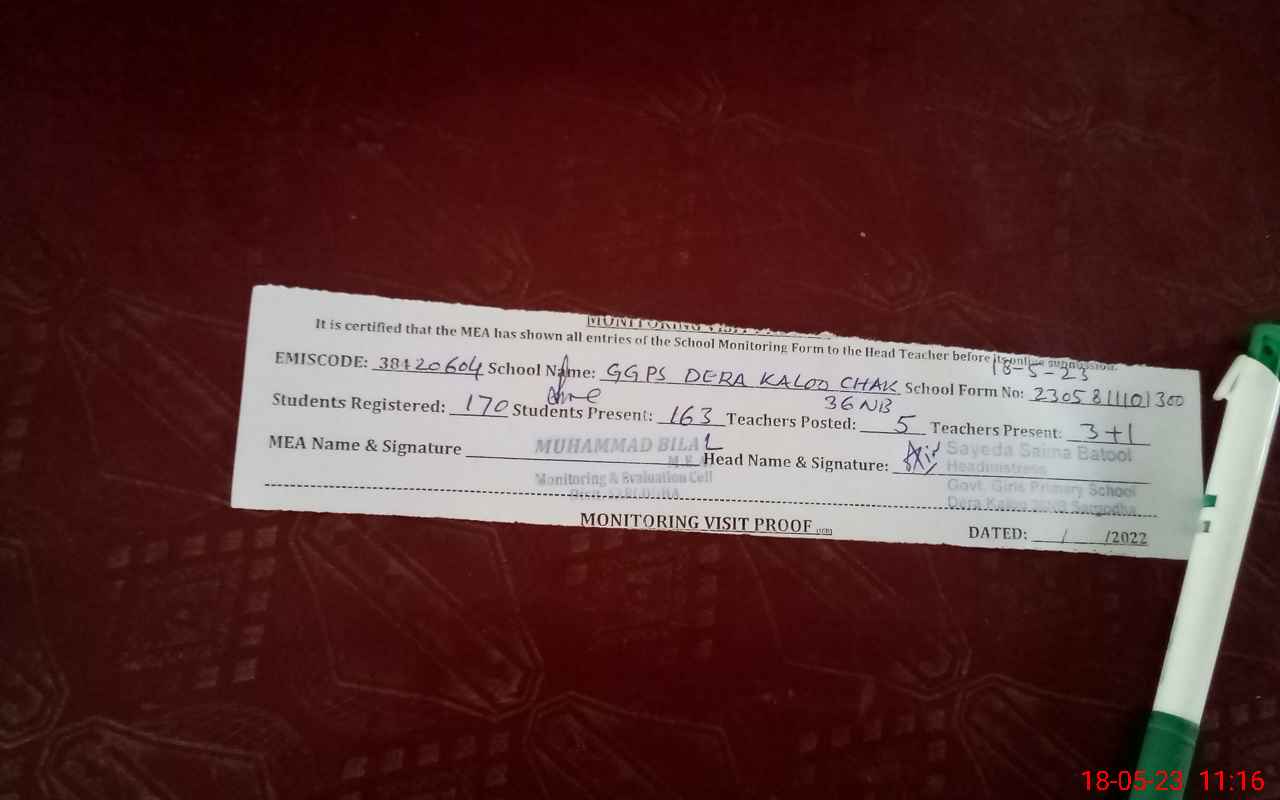 MONITORING VISIT
It is certified that the MEA has shown all entries of the School Monitoring Form to the Head Teacher before its online submission.
18-5-23
EMISCODE: 38420604 School Name: GGPS DERA KALOO CHAK School Form No: 230581101300
36NB
Students Registered: 170 Students Present: 163 Teachers Posted: 5 Teachers Present: 3+1
MEA Name & Signature MUHAMMAD BILAL Head Name & Signature: Sayeda Saima Batool
M.E.A Headmistress
Monitoring & Evaluation Cell Govt. Girls Primary School
Dera Kaloo
MONITORING VISIT PROOF
DATED: / /2022
18-05-23 11:16